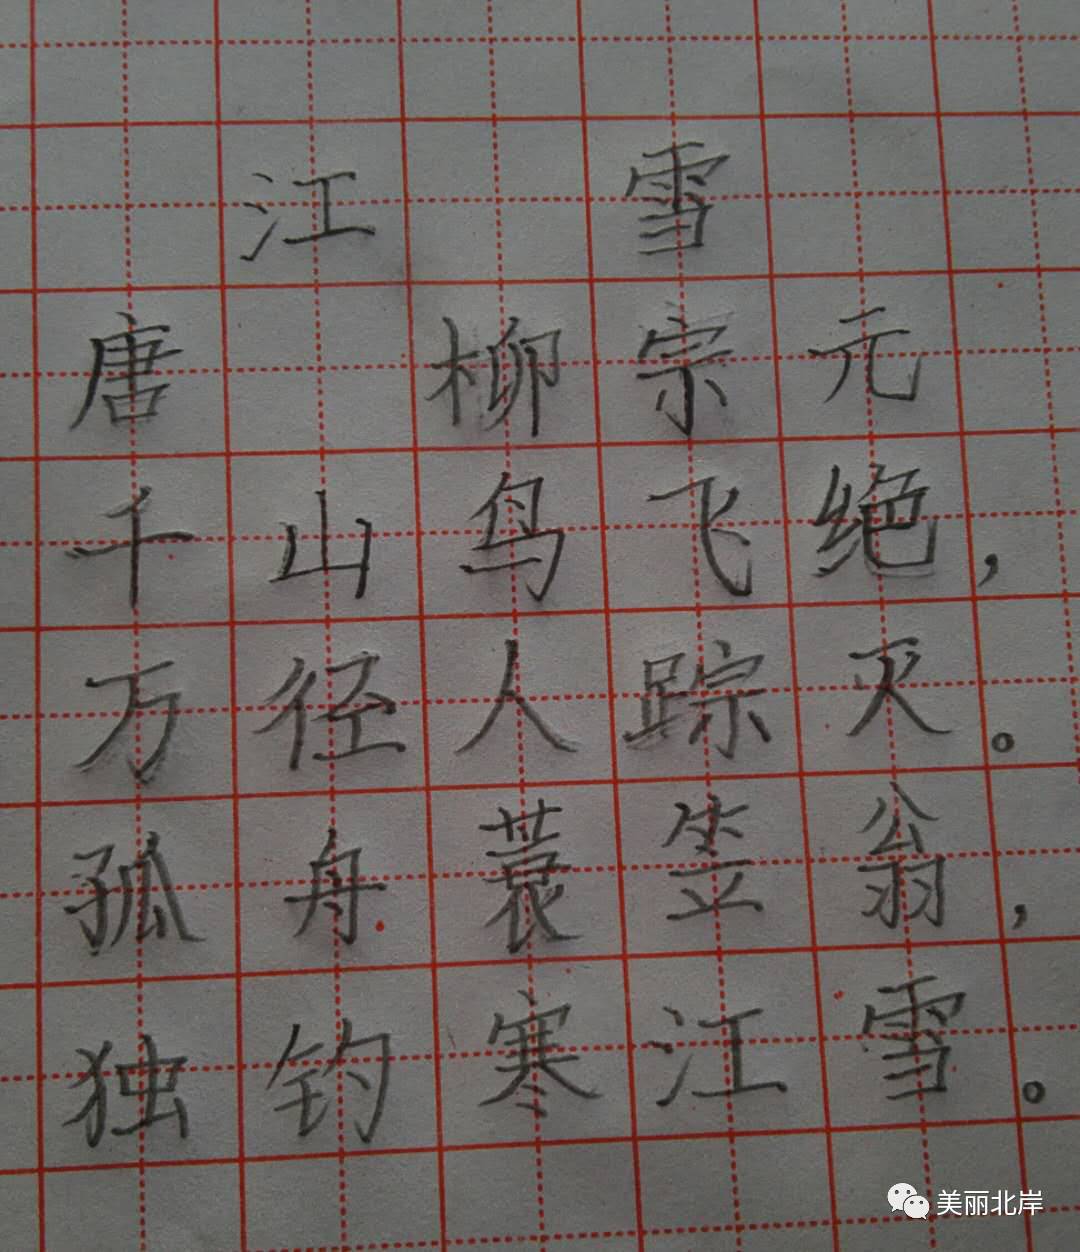 江 雪
唐 柳宗元
千山鸟飞绝，
万径人踪灭。
孤舟蓑笠翁，
独钓寒江雪。
美丽北岸